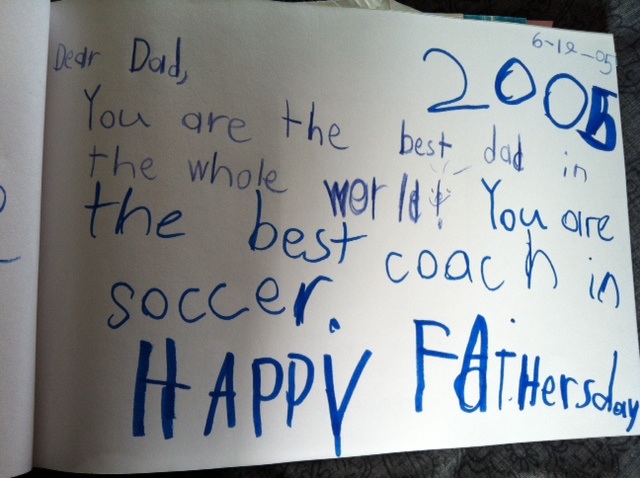 6-12-05
2005
Dear Dad,
You are the best dad in
the whole world! You are
the best coach in
soccer.
HAPPY FAtHersday